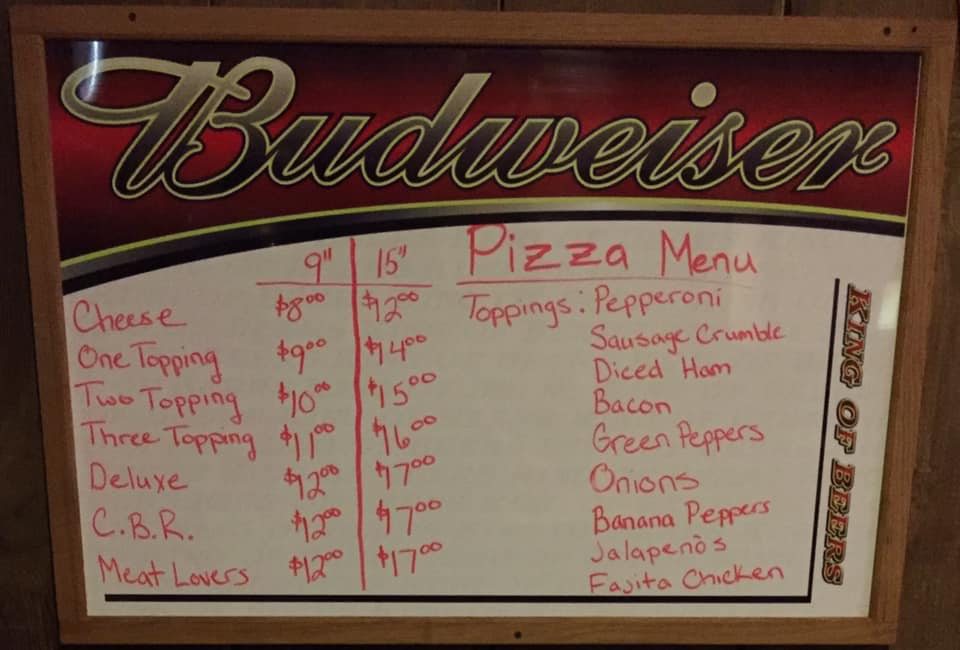 Budweiser
Pizza Menu
9" 15"
Cheese $8.00 $12.00
One Topping $9.00 $14.00
Two Topping $10.00 $15.00
Three Topping $11.00 $16.00
Deluxe $12.00 $17.00
C.B.R. $12.00 $17.00
Meat Lovers $12.00 $17.00
Toppings: Pepperoni
Sausage Crumble
Diced Ham
Bacon
Green Peppers
Onions
Banana Peppers
Jalapenòs
Fajita Chicken
KING OF BEERS